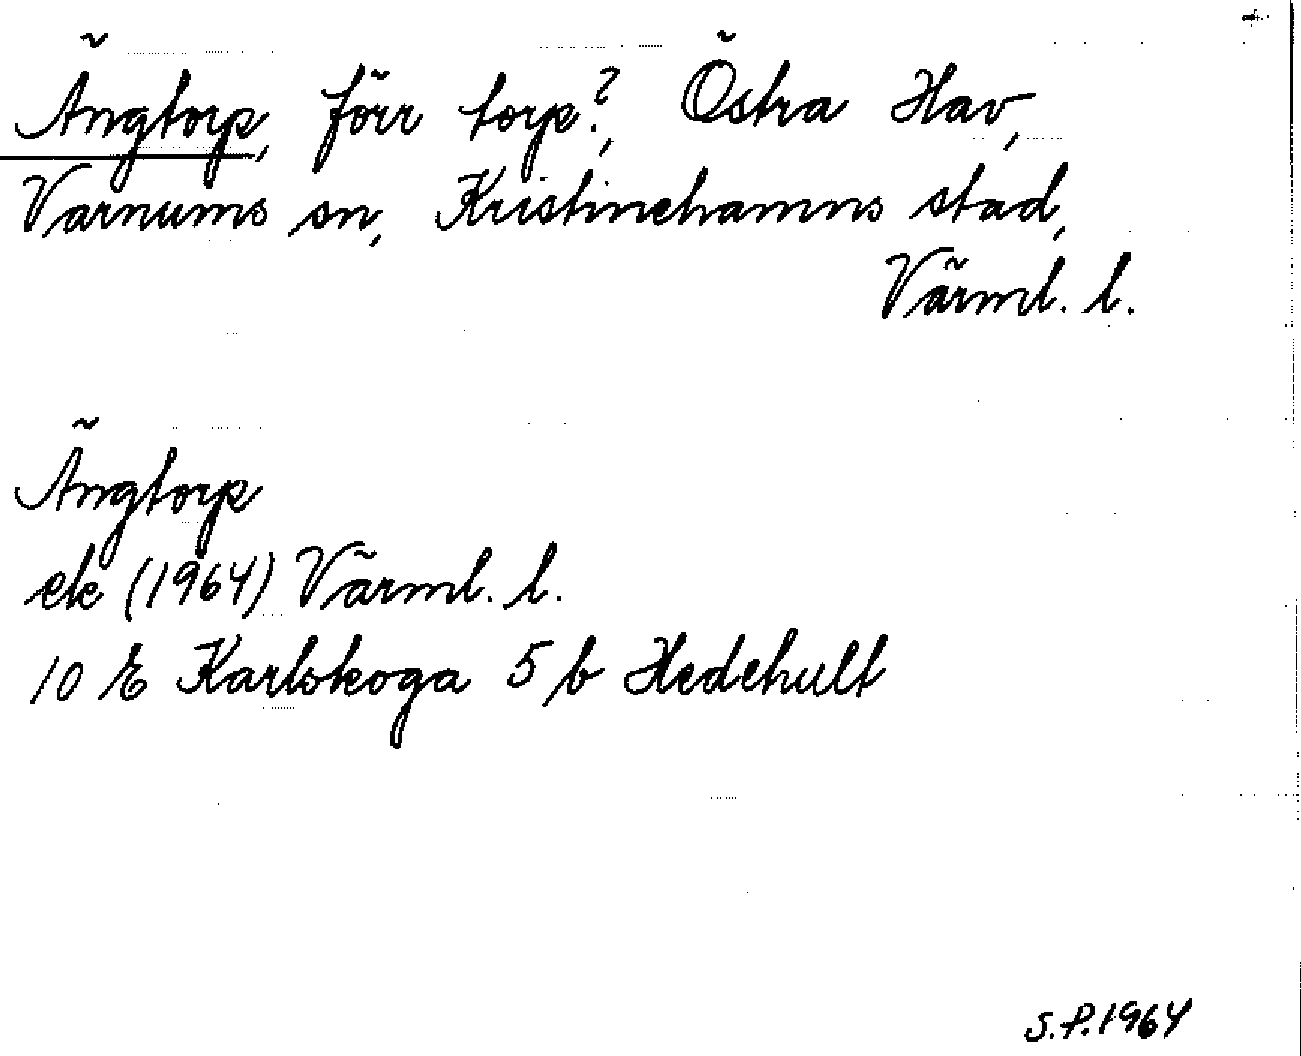 Ängtorp, förr torp?, Östra Hav,
Varnums sn, Kristinehamns stad,
Värml. l.
Ängtorp
ek (1964) Värml. l.
10 E Karlskoga 5 b Hedehult
S.P. 1964